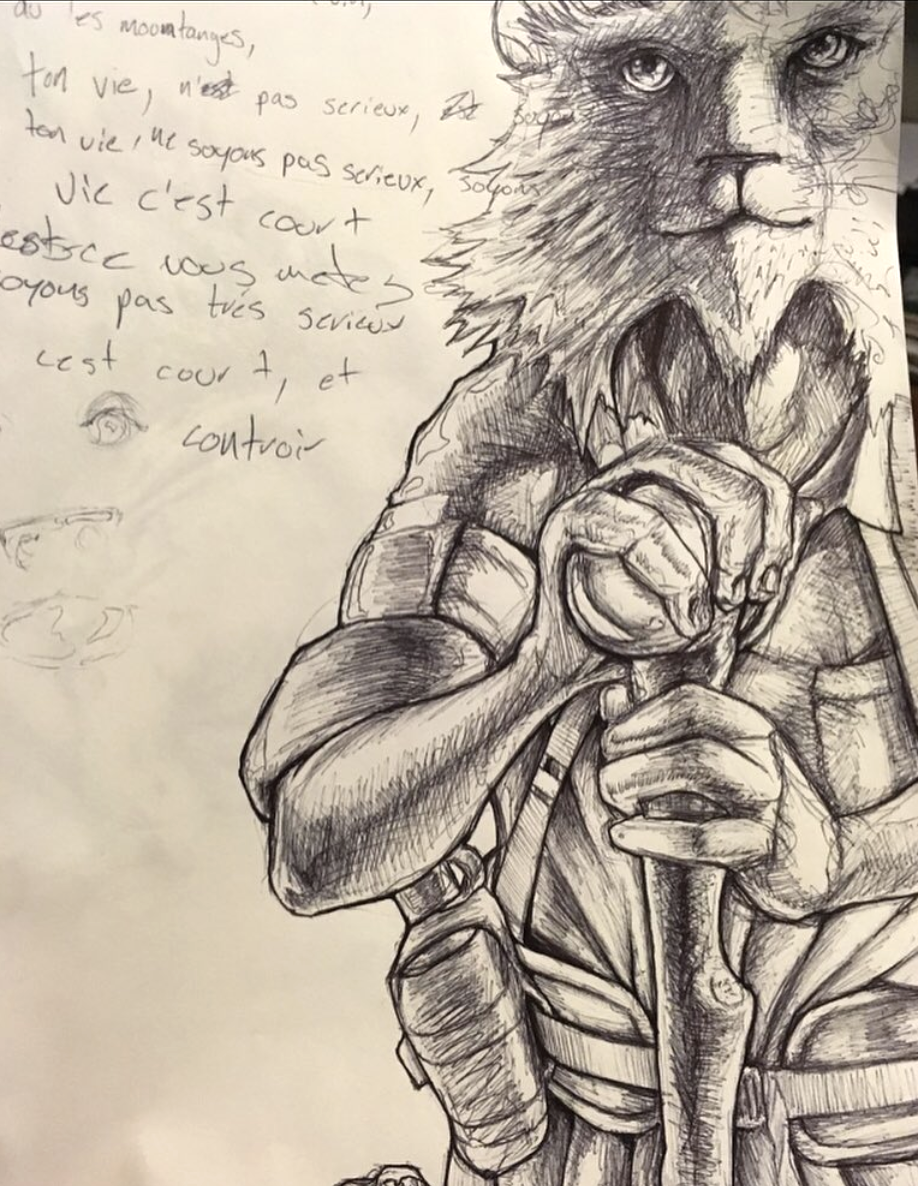 du les moomtanges,
ton vie, n'est pas serieux,
ton vie, ne soyons pas serieux, soyons
Vie c'est court
vous metez
soyons pas trés serieux
c'est court, et
controir